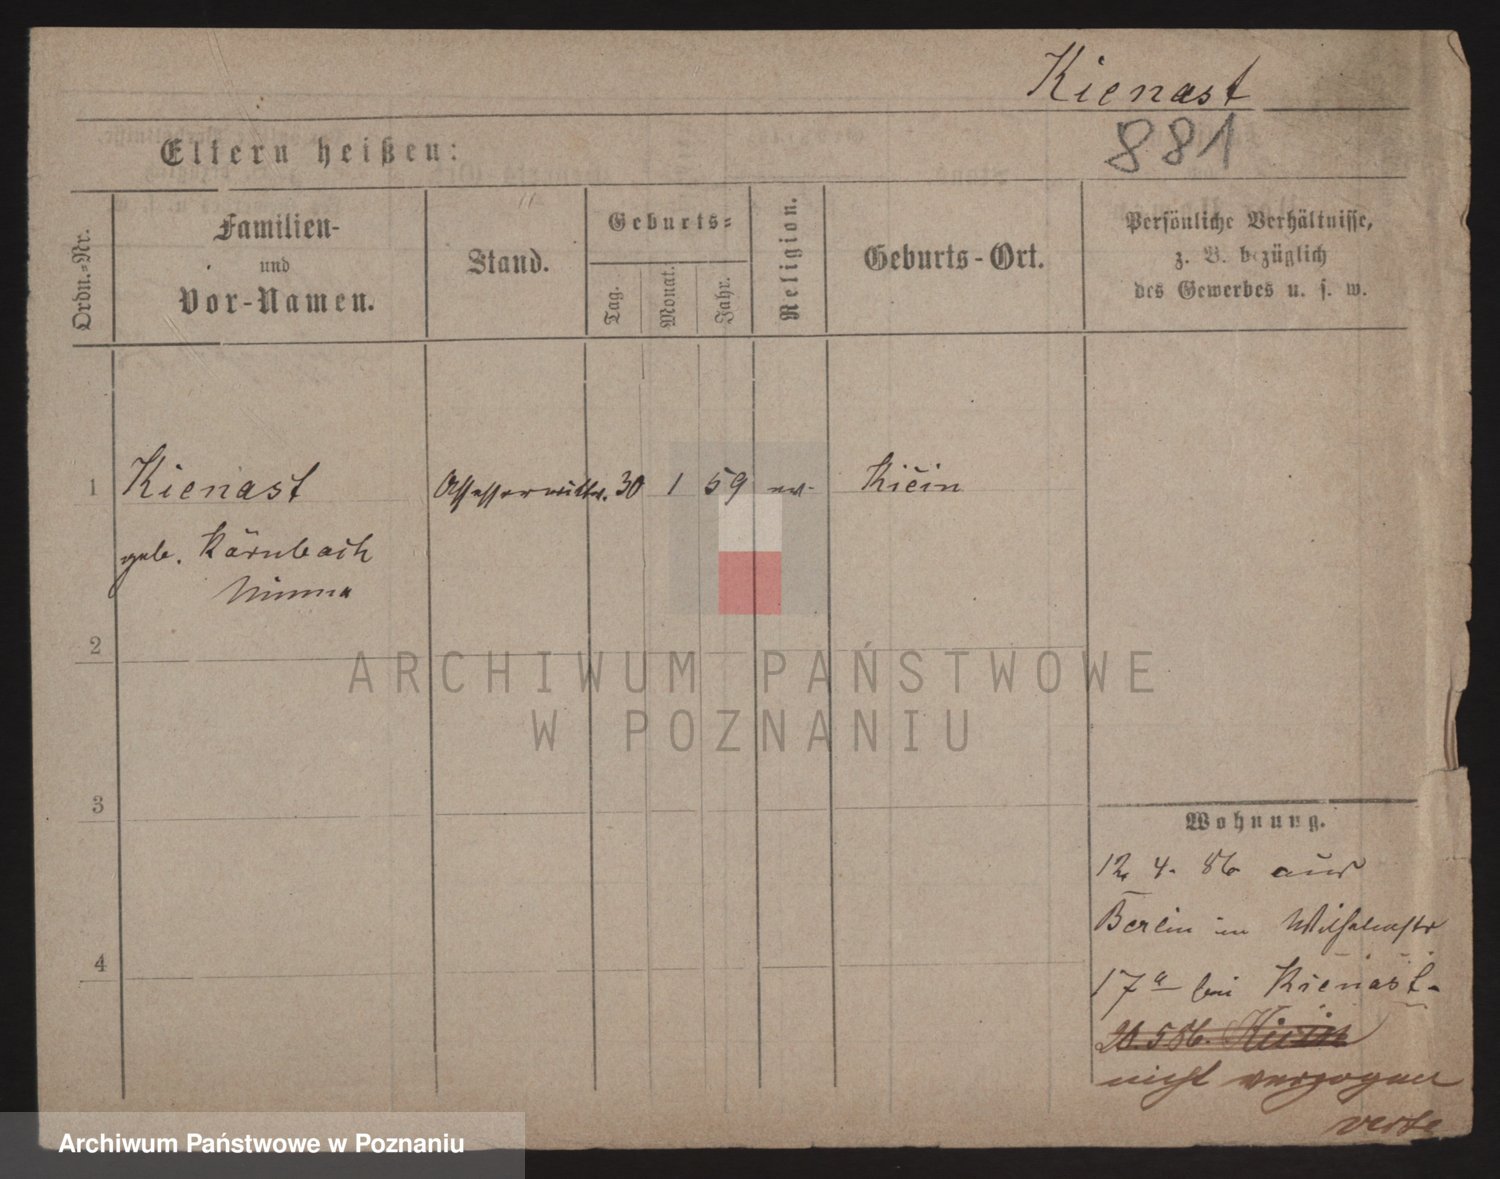 Kienast
881
Eltern heißen:
Ordn.=Nr.
Familien-
und
Vor-Namen.
Stand.
Geburts=
Tag.
Monat.
Jahr.
Religion.
Geburts-Ort.
Persönliche Verhältnisse,
z. B. bezüglich
des Gewerbes u. s. w.
1 Kienast Assessorwittw. 30 1 59 ev. Kičin
geb. Kärnbach
Minna
2
3
4
Wohnung.
12. 4. 86 aus
Berlin in
17a bei Kienast.
20.5.86. Kicin
nicht verzogen
verte
ARCHIWUM PAŃSTWOWE
W POZNANIU
Archiwum Państwowe w Poznaniu